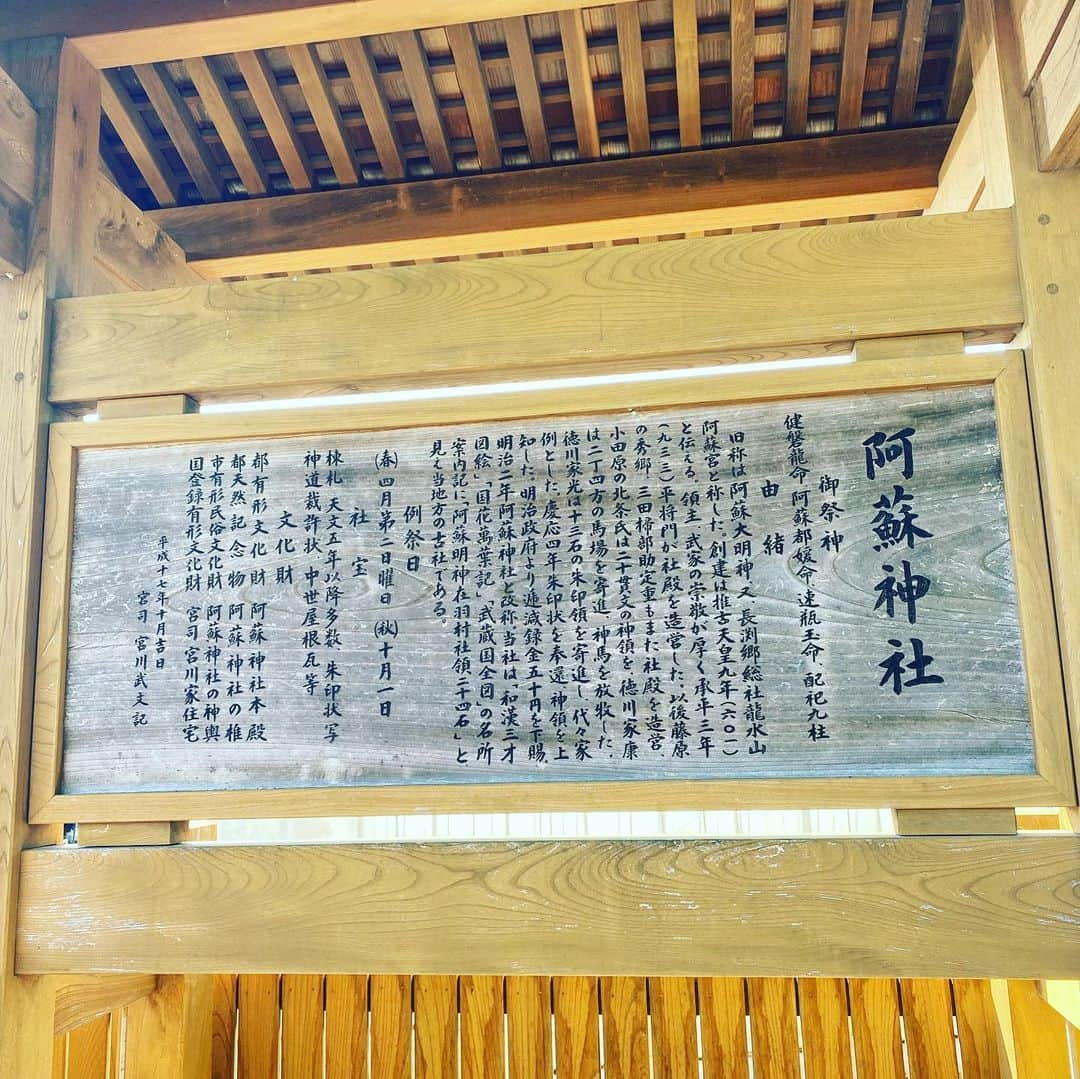 阿蘇神社
御祭神
健磐龍命、阿蘇都媛命、速瓶玉命、配祀九柱
由緒
旧称は阿蘇大明神、又長渕郷総社龍水山
阿蘇宮と称した。創建は推古天皇九年(六〇一)
と伝える。領主、武家の崇敬が厚く承平三年
(九三三)平将門が社殿を造営した。以後藤原
の秀郷、三田掃部助定重もまた社殿を造営、
小田原の北条氏は二十貫文の神領を、徳川家康
は二丁四方の馬場を寄進、神馬を放牧した。
徳川家光は十三石の朱印領を寄進し、代々家
例とした。慶応四年朱印状を奉還、神領を上
知した。明治政府より逓減録金五十円を下賜、
明治二年阿蘇神社と改称。当社は「和漢三才
図絵」「国花萬葉記」「武蔵国全図」の名所
案内記に「阿蘇明神在羽村社領二十四石」と
見え当地方の古社である。
例祭日
(春)四月第二日曜日 (秋)十月一日
社宝
棟札 天文五年以降多数、朱印状写
神道裁許状、中世屋根瓦等
文化財
都有形文化財 阿蘇神社本殿
都天然記念物 阿蘇神社の椎
市有形民俗文化財 阿蘇神社の神輿
国登録有形文化財 宮司宮川家住宅
平成十七年十月吉日
宮司 宮川武文記